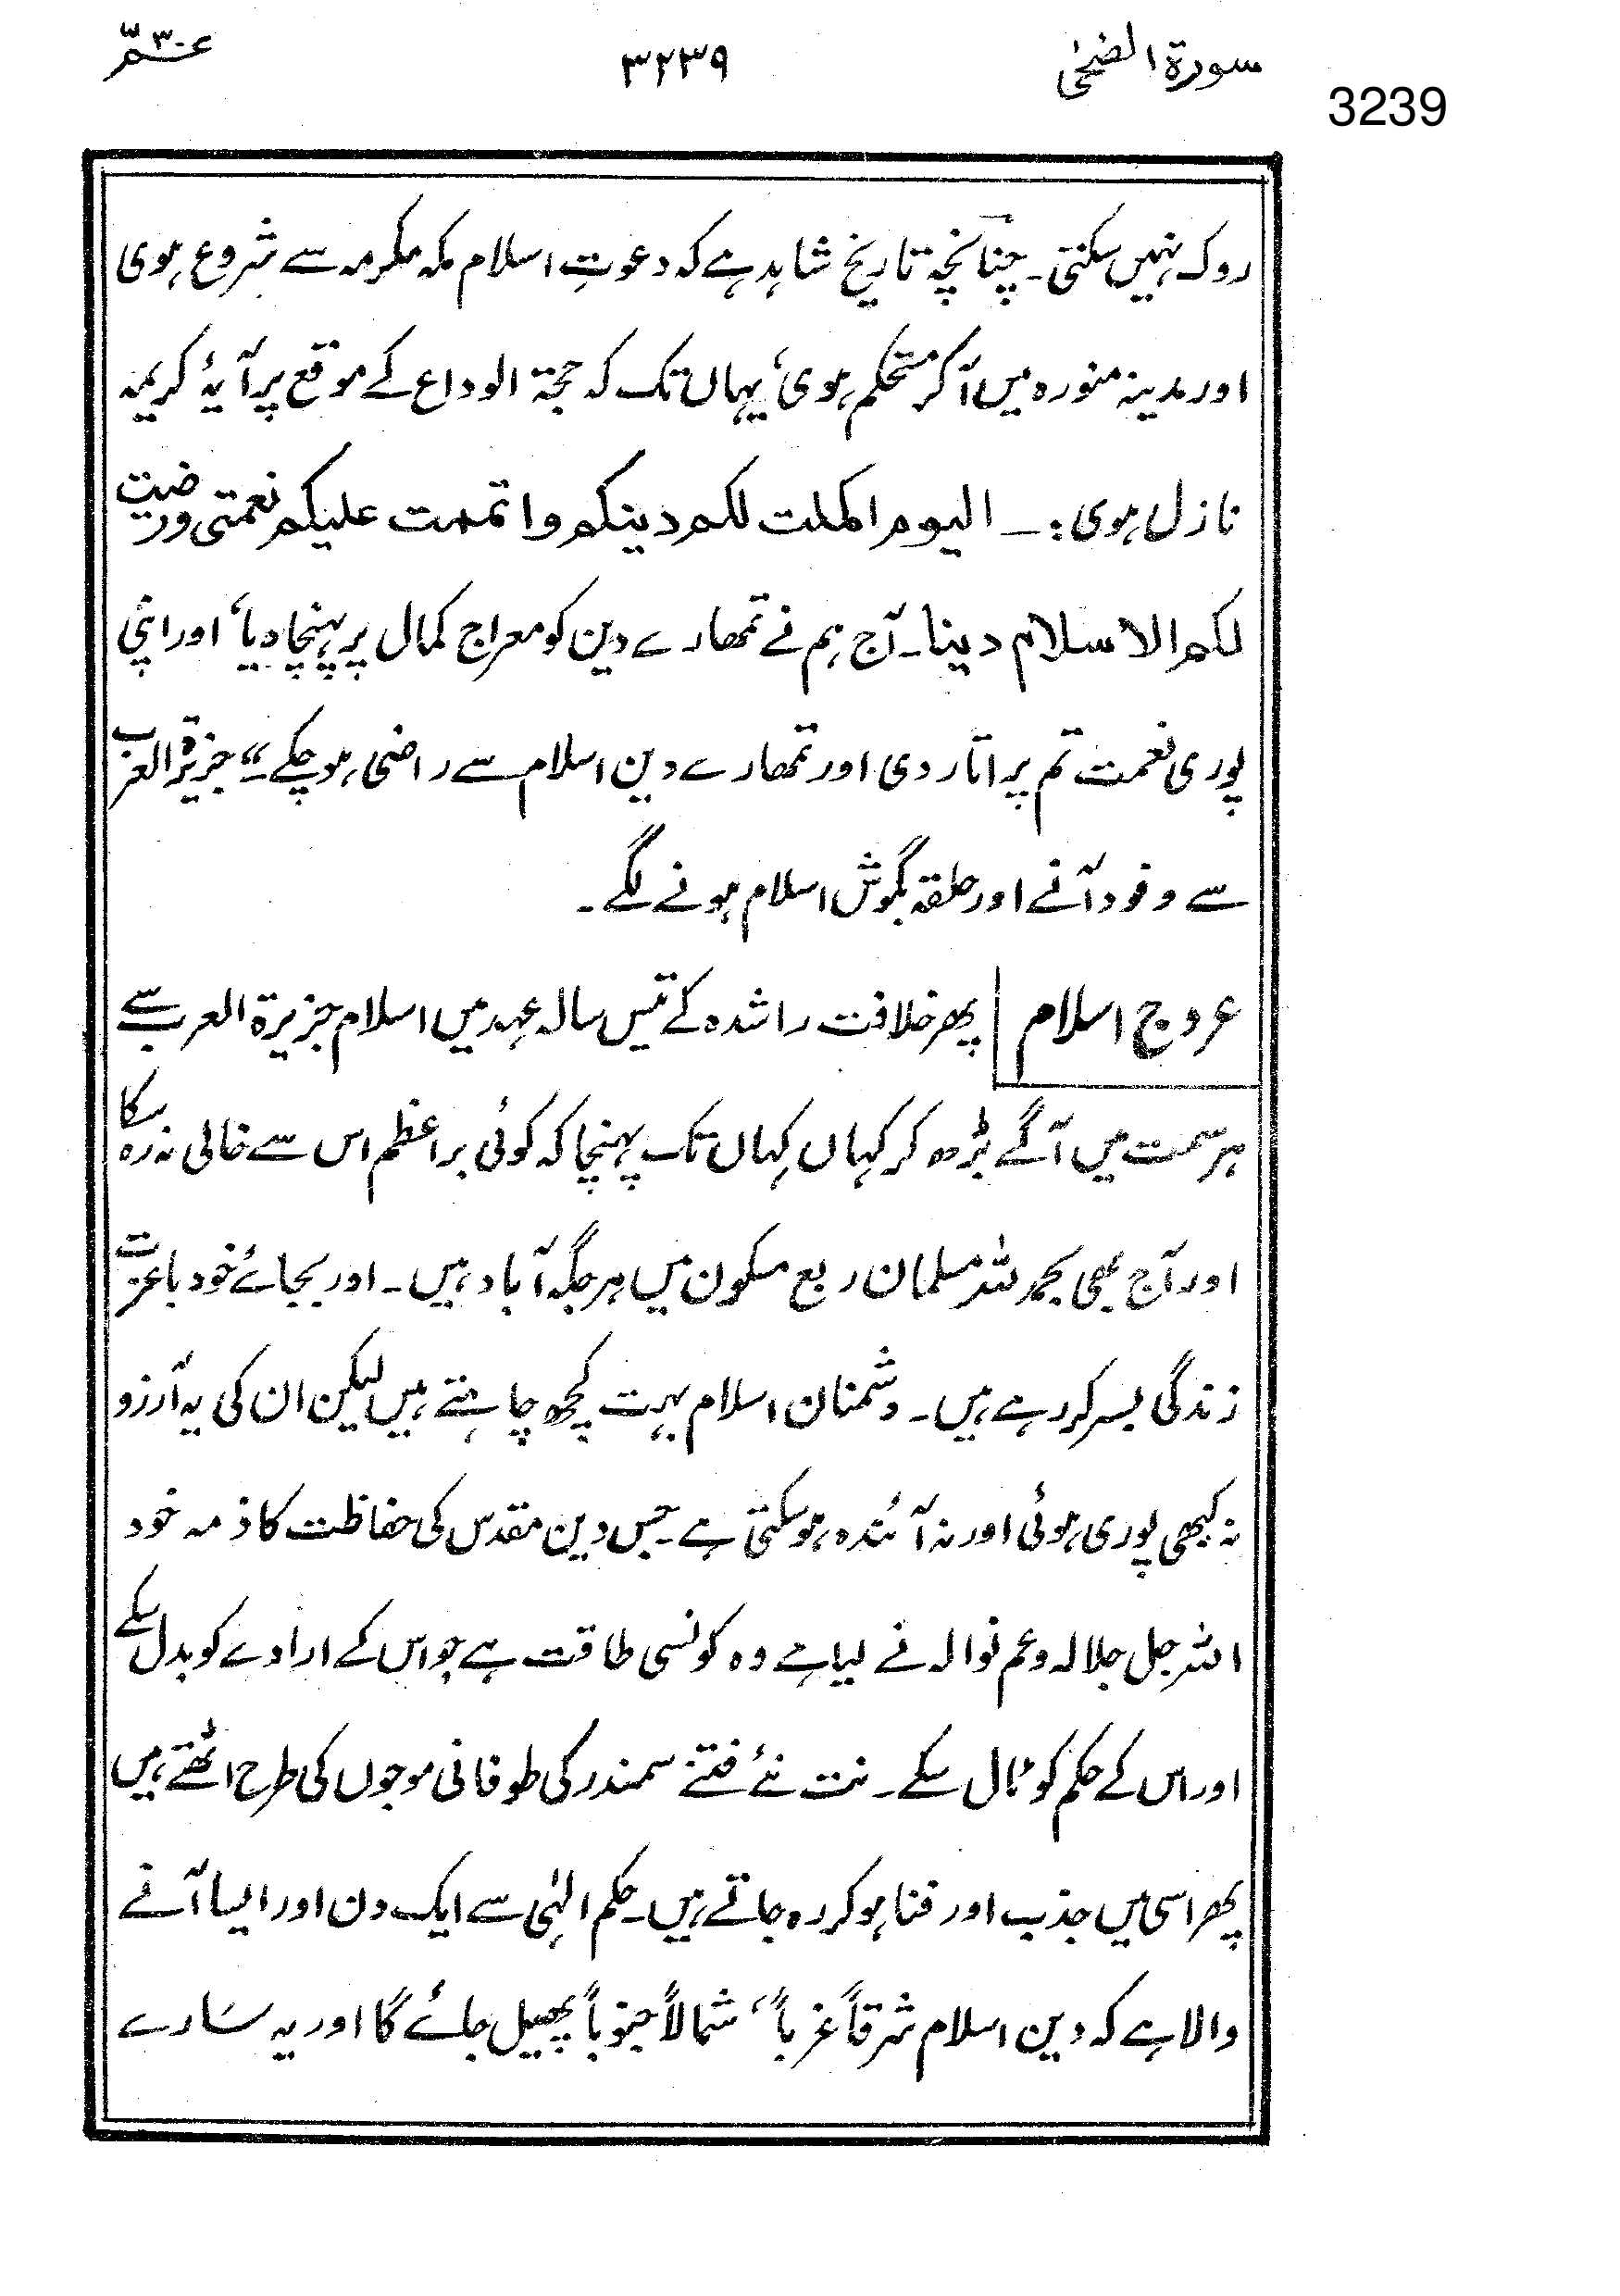 سورۃ الضحٰی ۳۲۳۹ عــمّ ۳۰
3239
روک نہیں سکتی۔ چنانچہ تاریخ شاہد ہے کہ دعوتِ اسلام مکہ مکرمہ سے شروع ہوی
اور مدینہ منورہ میں آکر مستحکم ہوی، یہاں تک کہ حجۃ الوداع کے موقع پر آیۂ کریمہ
نازل ہوی :۔ الیوم اکملت لکم دینکم واتممت علیکم نعمتی ورضیت
لکم الاسلام دینا۔ آج ہم نے تمھارے دین کو معراج کمال پر پہنچا دیا، اور اپنی
پوری نعمت تم پر اتار دی اور تمھارے دین اسلام سے راضی ہو چکے۔“ جزیرۃ العرب
سے وفود آنے اور حلقہ بگوش اسلام ہونے لگے۔
عروج اسلام پھر خلافت راشدہ کے تیس سالہ عہد میں اسلام جزیرۃ العرب سے
ہر سمت میں آگے بڑھ کر کہاں کہاں تک پہنچا کہ کوئی براعظم اس سے خالی نہ رہ سکا
اور آج بھی بحمد للہ مسلمان ربع مسکون میں ہر جگہ آباد ہیں۔ اور بجائے خود با عزت
زندگی بسر کر رہے ہیں۔ دشمنان اسلام بہت کچھ چاہتے ہیں لیکن ان کی یہ آرزو
نہ کبھی پوری ہوئی اور نہ آئندہ ہو سکتی ہے۔ جس دین مقدس کی حفاظت کا ذمہ خود
اللہ جل جلالہ وعم نوالہ نے لیا ہے وہ کونسی طاقت ہے جو اس کے ارادے کو بدل سکے
اور اس کے حکم کو ٹال سکے۔ نت نئے فتنے سمندر کی طوفانی موجوں کی طرح اٹھتے ہیں
پھر اسی میں جذب اور فنا ہو کر رہ جاتے ہیں۔ حکم الٰہی سے ایک دن اور ایسا آنے
والا ہے کہ دین اسلام شرقاً غرباً، شمالاً جنوباً پھیل جائے گا اور یہ سارے